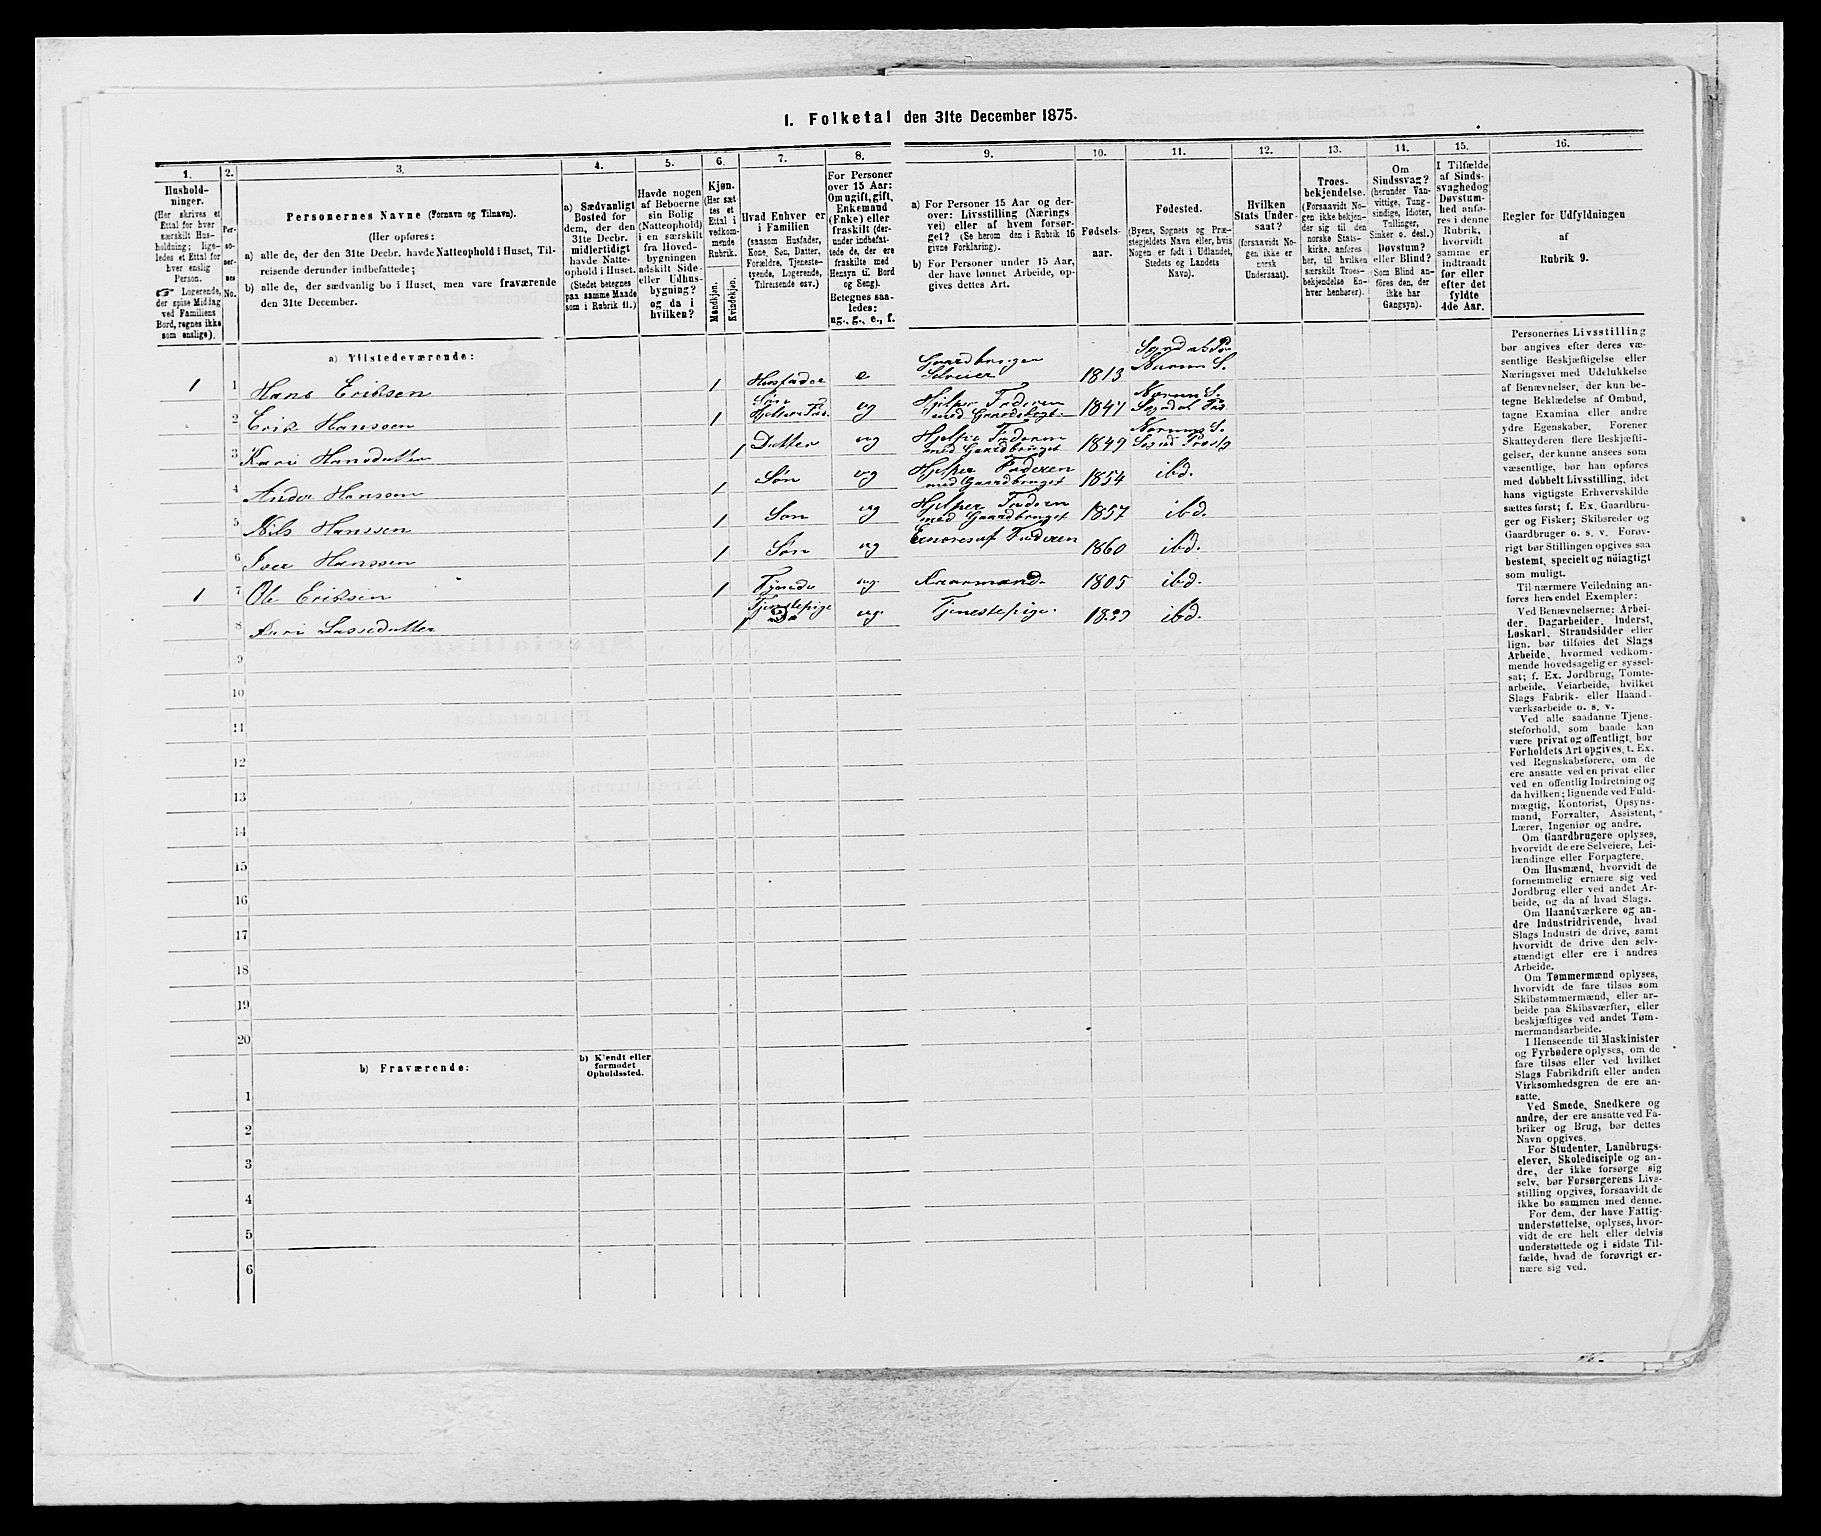 1. Folketal den 31te December 1875.
1.
Hushold-
ninger.
(Her skrives et
Ettal for hver
særskilt Hus-
holdning; lige-
ledes et Ettal for
hver enslig
Person.
☞ Logerende,
der spise Middag
ved Familiens
Bord, regnes ikke
som enslige).
2.
Per-
so-
ner-
nes
No.
3.
Personernes Navne (Fornavn og Tilnavn).
(Her opføres:
a) alle de, der den 31te Decbr. havde Natteophold i Huset, Til-
reisende derunder indbefattede;
b) alle de, der sædvanlig bo i Huset, men vare fraværende
den 31te December.
4.
a) Sædvanligt
Bosted for
dem, der den
31te Decbr.
midlertidigt
havde Natte-
ophold i Huset.
(Stedet betegnes
paa samme Maade
som i Rubrik 11.)
5.
Havde nogen
af Beboerne
sin Bolig
(Natteophold)
i en særskilt
fra Hoved-
bygningen
adskilt Side-
eller Udhus-
bygning?
og da i
hvilken?
6.
Kjøn.
(Her sæt-
tes et
Ettal i
vedkom-
mende
Rubrik.
Mandkjøn.
Kvindekjøn.
7.
Hvad Enhver er
i Familien
(saasom Husfader,
Kone, Søn, Datter,
Forældre, Tjeneste-
tyende, Logerende,
Tilreisende osv.)
8.
For Personer
over 15 Aar:
Om ugift, gift,
Enkemand
(Enke) eller
fraskilt (der-
under indbefat-
tede de, der ere
fraskilte med
Hensyn til Bord
og Seng).
Betegnes saa-
ledes:
ug., g., e., f.
9.
a) For Personer 15 Aar og der-
over: Livsstilling (Nærings
vei) eller af hvem forsør-
get? (Se herom den i Rubrik 16
givne Forklaring).
b) For Personer under 15 Aar,
der have lønnet Arbeide, op-
gives dettes Art.
10.
Fødsels-
aar.
11.
Fødested.
(Byens, Sognets og Præ-
stegjeldets Navn eller, hvis
Nogen er født i Udlandet,
Stedets og Landets
Navn).
12.
Hvilken
Stats Under-
saat?
(forsaavidt No-
gen ikke er
norsk
Undersaat).
13.
Troes-
bekjendelse.
(Forsaavidt No-
gen ikke bekjen-
der sig til den
norske Stats-
kirke, anføres
her, til hvilken
særskilt Troes-
bekjendelse En-
hver henhører).
14.
Om
Sindssvag?
(herunder Van-
vittige, Tung-
sindige, Idioter,
Tullinger,
Sinker o. desl.)
Døvstum?
eller Blind?
(Som Blind an-
føres den, der
ikke har
Gangsyn).
15.
I Tilfælde
af Sinds-
svaghed og
Døvstum-
hed anfø-
res i denne
Rubrik,
hvorvidt
samme er
indtraadt
før eller
efter det
fyldte
4de Aar.
16.
Regler for Udfyldningen
af
Rubrik 9.
a) Tilstedeværende:
1 1 Hans Eriksen 1 Husfader e Gaardbruger Selveier 1813
2 Erik Hanssen 1 Søn ug Hjelper Faderen med 1847
3 Kari Hansdatter 1 Datter ug Hjelper Faderen med Gaardbruget 1849
4 Hanssen 1 Søn ug Hjelper Faderen med Gaardbruget 1854 ibd.
5 Nils Hanssen 1 Søn ug Hjelper Faderen med Gaardbruget 1857 ibd.
6 Iver Hanssen 1 Søn ug Ernæres af Faderen 1860 ibd.
1 7 Ole Eriksen 1 ug. Kaarmand. 1805 ibd.
8 Lassedatter 1 Tjenestepige ug. Tjenestepige. ibd.
9
10
11
12
13
14
15
16
17
18
19
20
b) Fraværende:
b) Kjendt eller
formodet
Opholdssted.
1
2
3
4
5
6
Personernes Livsstilling
bør angives efter deres væ-
sentlige Beskjæftigelse eller
Næringsvei med Udelukkelse
af Benævnelser, der kun be-
tegne Beklædelse af Ombud,
tagne Examina eller andre
ydre Egenskaber. Forener
Skatteyderen flere Beskjæfti-
gelser, der kunne ansees som
væsentlige, bør han opføres
med dobbelt Livsstilling, idet
hans vigtigste Erhvervskilde
sættes først; f. Ex. Gaardbru-
ger og Fisker; Skibsreder og
Gaardbruger o. s. v. Forøv-
rigt bør Stillingen opgives saa
bestemt, specielt og nøiagtigt
som muligt.
Til nærmere Veiledning an-
føres her endel Exempler:
Ved Benævnelserne: Arbei-
der, Dagarbeider, Inderst,
Løskarl, Strandsidder eller
lign. bør tilføies det Slags
Arbeide, hvormed vedkom-
mende hovedsagelig er syssel-
sat; f. Ex. Jordbrug, Tomte-
arbeide, Veiarbeide, hvilket
Slags Fabrik- eller Haand-
værksarbeide o. s. v.
Ved alle saadanne Tjene-
steforhold, som baade kan
være privat og offentligt, bør
Forholdets Art opgives, t. Ex.
ved Regnskabsførere, om de
ere ansatte ved en privat eller
ved en offentlig Indretning og
da hvilken; lignende ved Fuld-
mægtig, Kontorist, Opsyns-
mand, Forvalter, Assistent,
Lærer, Ingeniør og andre.
Om Gaardbrugere oplyses,
hvorvidt de ere Selveiere, Lei-
lændinge eller Forpagtere.
Om Husmænd, hvorvidt de
fornemmelig ernære sig ved
Jordbrug eller ved andet Ar-
beide, og da af hvad Slags.
Om Haandværkere og an-
dre Industridrivende, hvad
Slags Industri de drive, samt
hvorvidt de drive den selv-
stændigt eller ere i andres
Arbeide.
Om Tømmermænd oplyses,
hvorvidt de fare tilsøs som
Skibstømmermænd, eller ar-
beide paa Skibsværfter, eller
beskjæftiges ved andet Tøm-
mermandsarbeide.
I Henseende til Maskinister
og Fyrbødere oplyses, om de
fare tilsøs eller ved hvilket
Slags Fabrikdrift eller anden
Virksomhedsgren de ere an-
satte.
Ved Smede, Snedkere og
andre, der ere ansatte ved Fa-
briker og Brug, bør dettes
Navn opgives.
For Studenter, Landbrugs-
elever, Skoledisciple og an-
dre, der ikke forsørge sig
selv, bør Forsørgerens Livs-
stilling opgives, forsaavidt de
ikke bo sammen med denne.
For dem, der have Fattig-
understøttelse, oplyses, hvor-
vidt de ere helt eller delvis
understøttede og i sidste Til-
fælde, hvad de forøvrigt er-
nære sig ved.